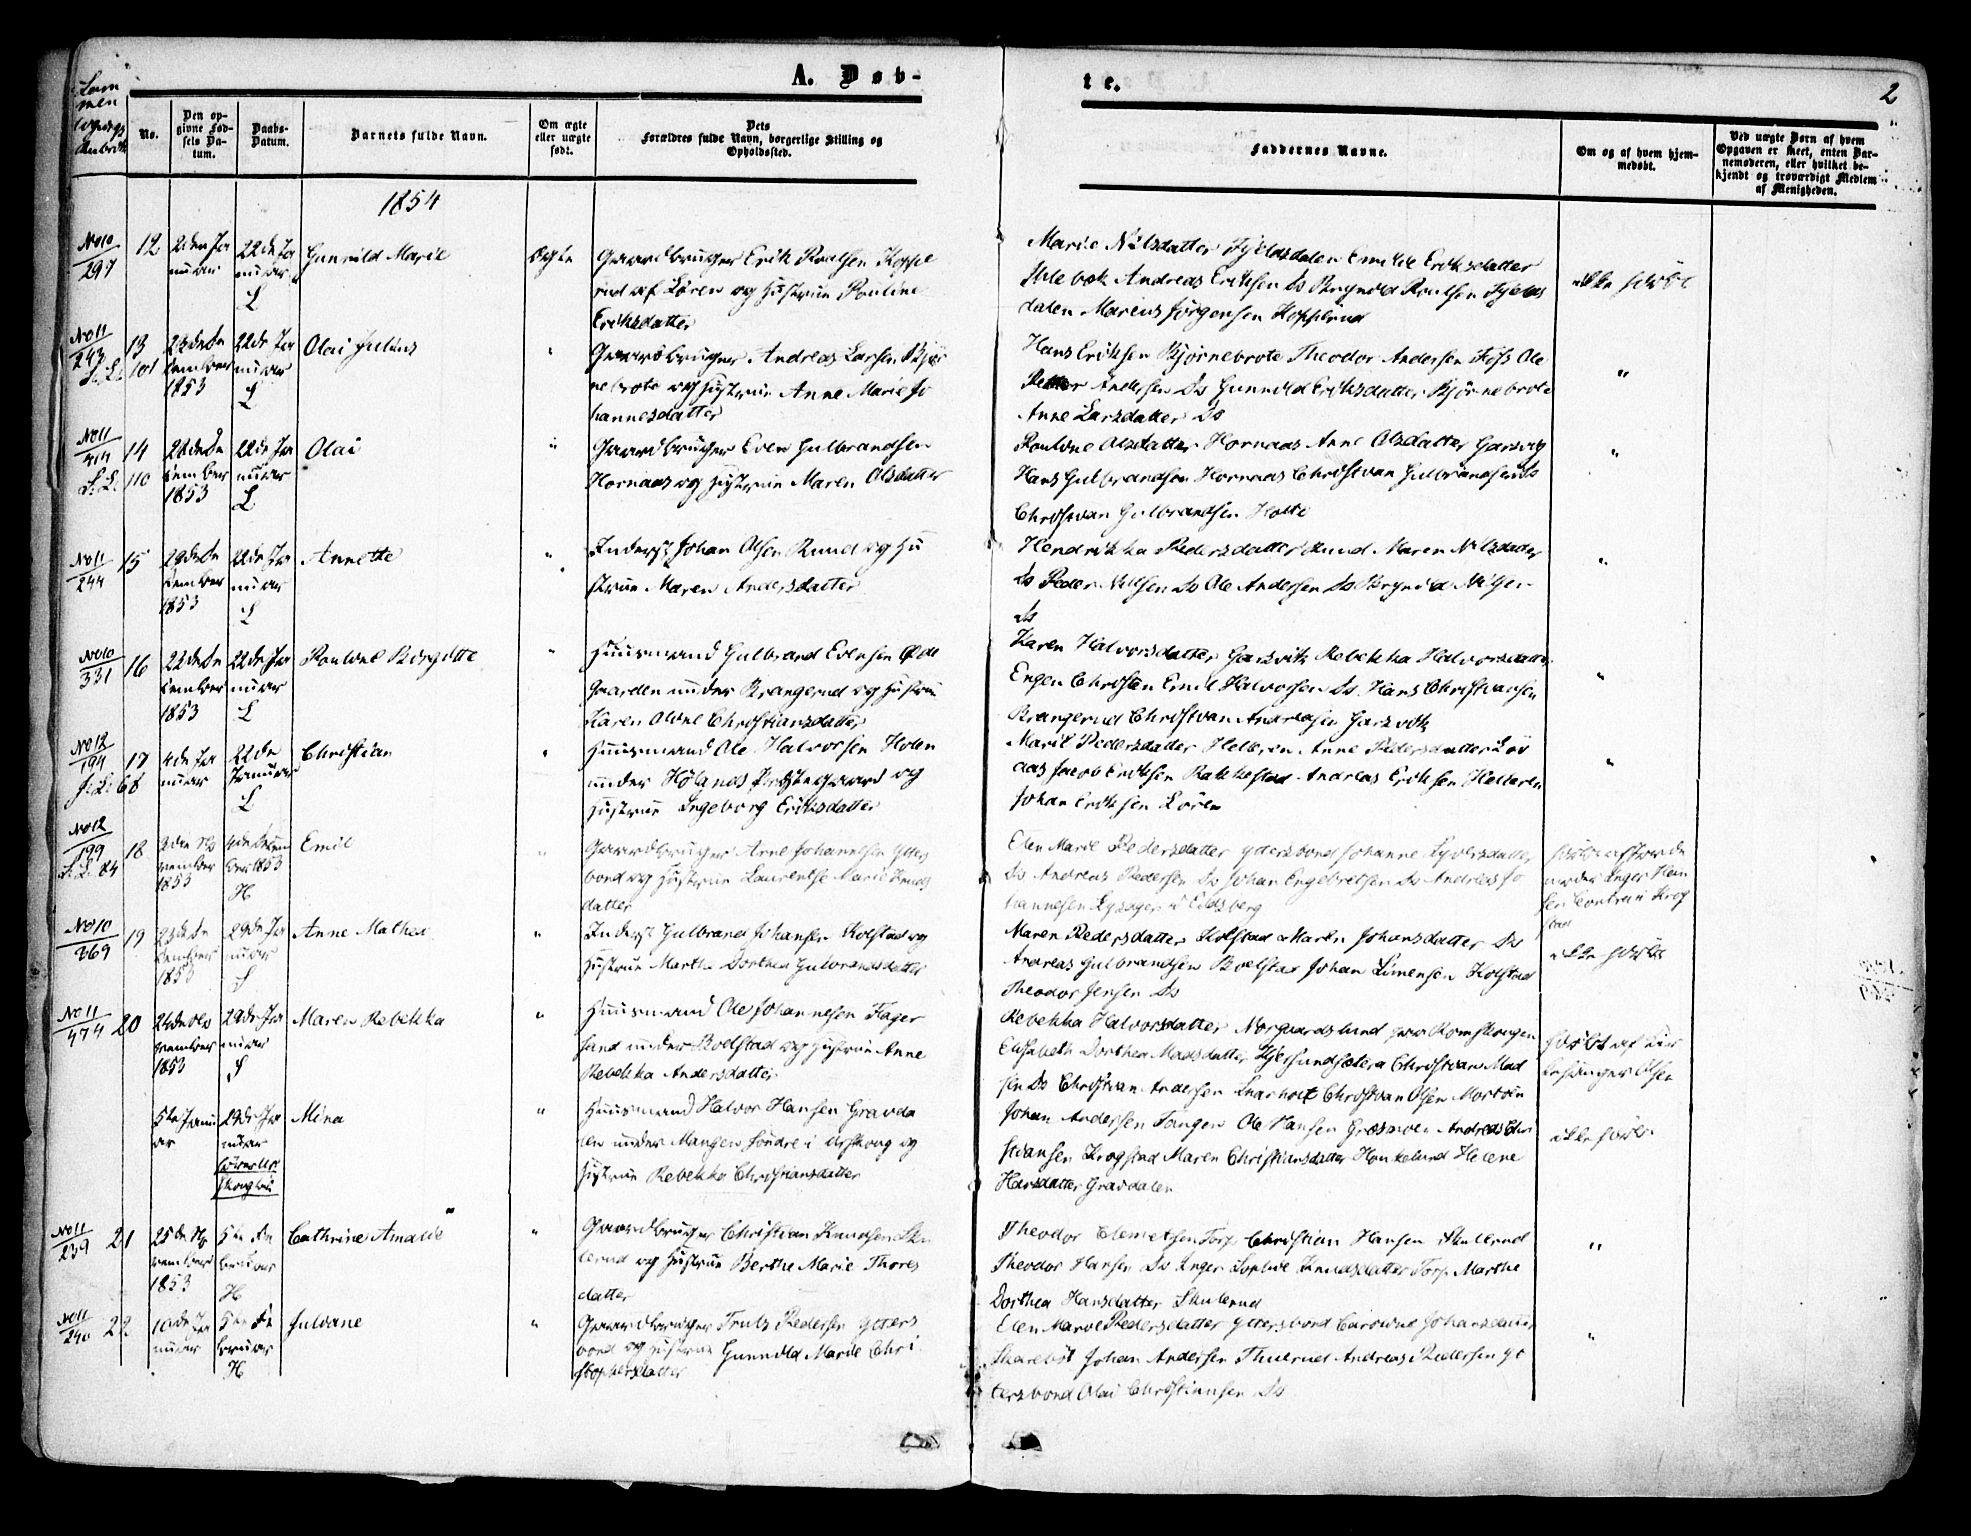 A. Døb-
te.
2
No.
Den op-
givne Fød-
sels Da-
tum.
Daabs-
Datum.
Barnets fulde Navn.
Om ægte
eller uægte
født.
Dets
Forældres fulde Navn, borgerlige Stilling og
Opholdssted.
Faddernes Navne.
Om og af hvem hjem-
medøbt.
Ved uægte Børn af hvem
Opgaven er skeet, enten Bar-
nemoderen, eller hvilket be-
kjendt og troværdigt Medlem
af Menigheden.
1854
No 10
297
12
2den Ja
nuar
22de Ja
nuar
L
Gunnild Marie
Ægte
Gaardbruger Erik Poulsen Koppe
rud af Løren og Hustrue Pouline
Eriksdatter
Marie Nilsdatter Fjeldsdalen Emilie Eriksdatter
Andreas Eriksen Ds Brynild Poulsen Fjelds
dalen Marius Jørgensen Kopperud
ikke hjdøbt
No 11
243
S.L. 101
13
23de De
cember
1853
22de Ja
nuar
L
Olai Julius
"
Gaardbruger Andreas Larsen Bjør
nebrote og Hustrue Anne Marie Jo
hannesdatter
Hans Eriksen Bjørnebrote Theodor Andersen Foss Ole
Petter Andersen Ds Gunnild Eriksdatter Bjørnebrote
Anne Larsdatter Ds
"
No 11
414
S.L. 110
14
28de De
cember
1853
22de Ja
nuar
L
Olai
"
Gaardbruger Even Gulbrandsen
Hornaas og Hustrue Maren Olsdatter
Pouline Olsdatter Hornaas Anne Olsdatter Garsvig
Hans Gulbrandsen Hornaas Christian Gulbrandsen Ds
Christian Gulbrandsen Holte
"
No 11
244
15
29de De
cember
1853
22de Ja
nuar
L
Annette
"
Inderst Johan Olsen Rund og Hu
strue Maren Andersdatter
Hendrikka Pedersdatter Rund Maren Nilsdatter
Ds Peder Nilsen Ds Ole Andersen Ds Brynild
Ds
"
No 10
331
16
22de De
cember
1853
22de Ja
nuar
L
Pouline Birgitte
"
Huusmand Gulbrand Evensen Øde
Gaarden under Brangerud og Hustru
Karen Oline Christiansdatter
Karen Halvorsdatter Garsvik Rebekka Halvorsdatter
Engen Christen Emil Halvorsen Ds. Hans Christiansen
Brangerud Christian Andreasen Garsvik
"
No 12
194
S.L. 68
17
4de Ja
nuar
22de
Januar
L
Christian
"
Huusmand Ole Halvorsen Holen
under Hølands Prestegaard og
Hustrue Ingeborg Eriksdatter
Marie Pedersdatter Helleren Anne Pedersdatter Løv
aas Jacob Eriksen Rakkestad Andreas Eriksen Helleren
Johan Eriksen Løren
"
No 12
199
S.L. 84
18
2den No
vember
1853
4de Decem
ber 1853
H
Emil
"
Gaardbruger Arne Johannesen Ytters
bond og Hustrue Laurentse Marie Knuds
datter
Elen Marie Pedersdatter Yttersbond Johanne Syversdatter
Ds Andreas Pedersen Ds Johan Engebretsen Ds Andreas Jo
hannesen i Eidsberg
No 10
369
19
23de De
cember
1853
29de Ja
nuar
S
Anne Mathea
"
Inderst Gulbrand Johansen Kolstad og
Hustrue Marthe Dorthea Gulbrandsdatter
Maren Pedersdatter Kolstad Maren Johansdatter Ds
Andreas Gulbrandsen Boelstad Johan Simensen Kolstad
Theodor Jensen Ds
ikke hjdøbt
No 11
474
20
24de No
vember
1853
29de Ja
nuar
S
Maren Rebekka
"
Huusmand Ole Johannesen Fager
land under Boelstad og Hustrue Anne
Rebekka Andersdatter
Rebekka Halvorsdatter Romskougen
Elisabeth Dorthea Madsdatter Christian Mad
sen Ds Christian Andersen Christian Olsen
hjdøbt af Kir
kesanger Olsen
5te Janu
ar
29de Ja
nuar
Mina
"
Huusmand Halvor Hansen Gravda
len under Mangen Søndre i Urskoug og
Hustrue Rebekka Christiansdatter
Johan Andersen Tangen Ole Hansen Græsmoen Andreas Chri
stiansen Krogstad Maren Christiansdatter Honkelund Helene
Hansdatter Gravdalen
ikke hjdøbt
No 11
239
21
25de No
vember
1853
5te Fe
bruar
H
Cathrine Amalie
"
Gaardbruger Christian Knudsen Sku
lerud og Hustrue Berthe Marie Thores
datter
Theodor Clemetsen Torp Christian Hansen Skulerud
Theodor Hansen Ds Inger Sophie Knudsdatter Torp Marthe
Dorthea Hansdatter Skulerud
"
No 11
240
22
10de Ja
nuar
5te Fe
bruar
H
Juliane
"
Gaardbruger Truls Pedersen Ytters
bond og Hustrue Gunnild Marie Chri
stophersdatter
Elen Marie Pedersdatter Yttersbond Caroline Johansdatter
Johan Andersen Thuerud Andreas Pedersen Yt
tersbond Olai Christiansen Ds
"